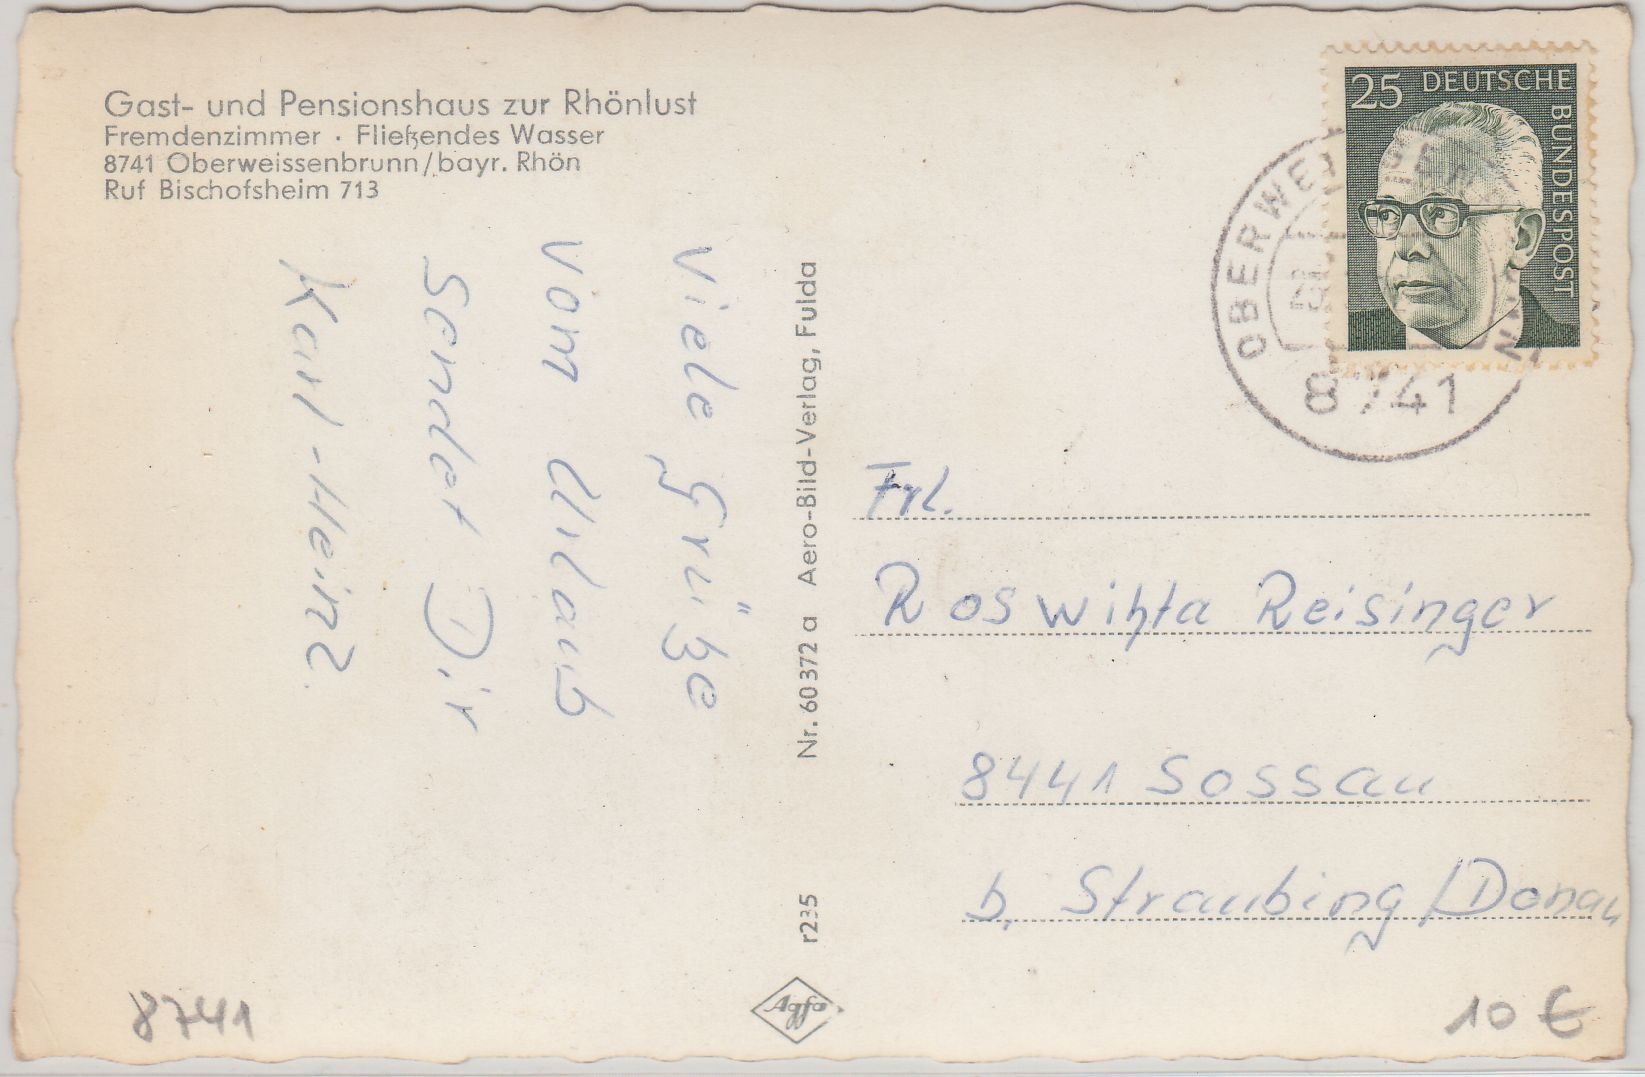 Gast- und Pensionshaus zur Rhönlust
Fremdenzimmer · Fließendes Wasser
8741 Oberweissenbrunn/bayr. Rhön
Ruf Bischofsheim 713
Viele Grüße
vom Urlaub
sendet Dir
Karl-Heinz
Nr. 60 372 a Aero-Bild-Verlag, Fulda
r235
Agfa
25 DEUTSCHE
BUNDESPOST
8741
Frl.
Roswihta Reisinger
8441 Sossau
b. Straubing/Donau
8741
10 €